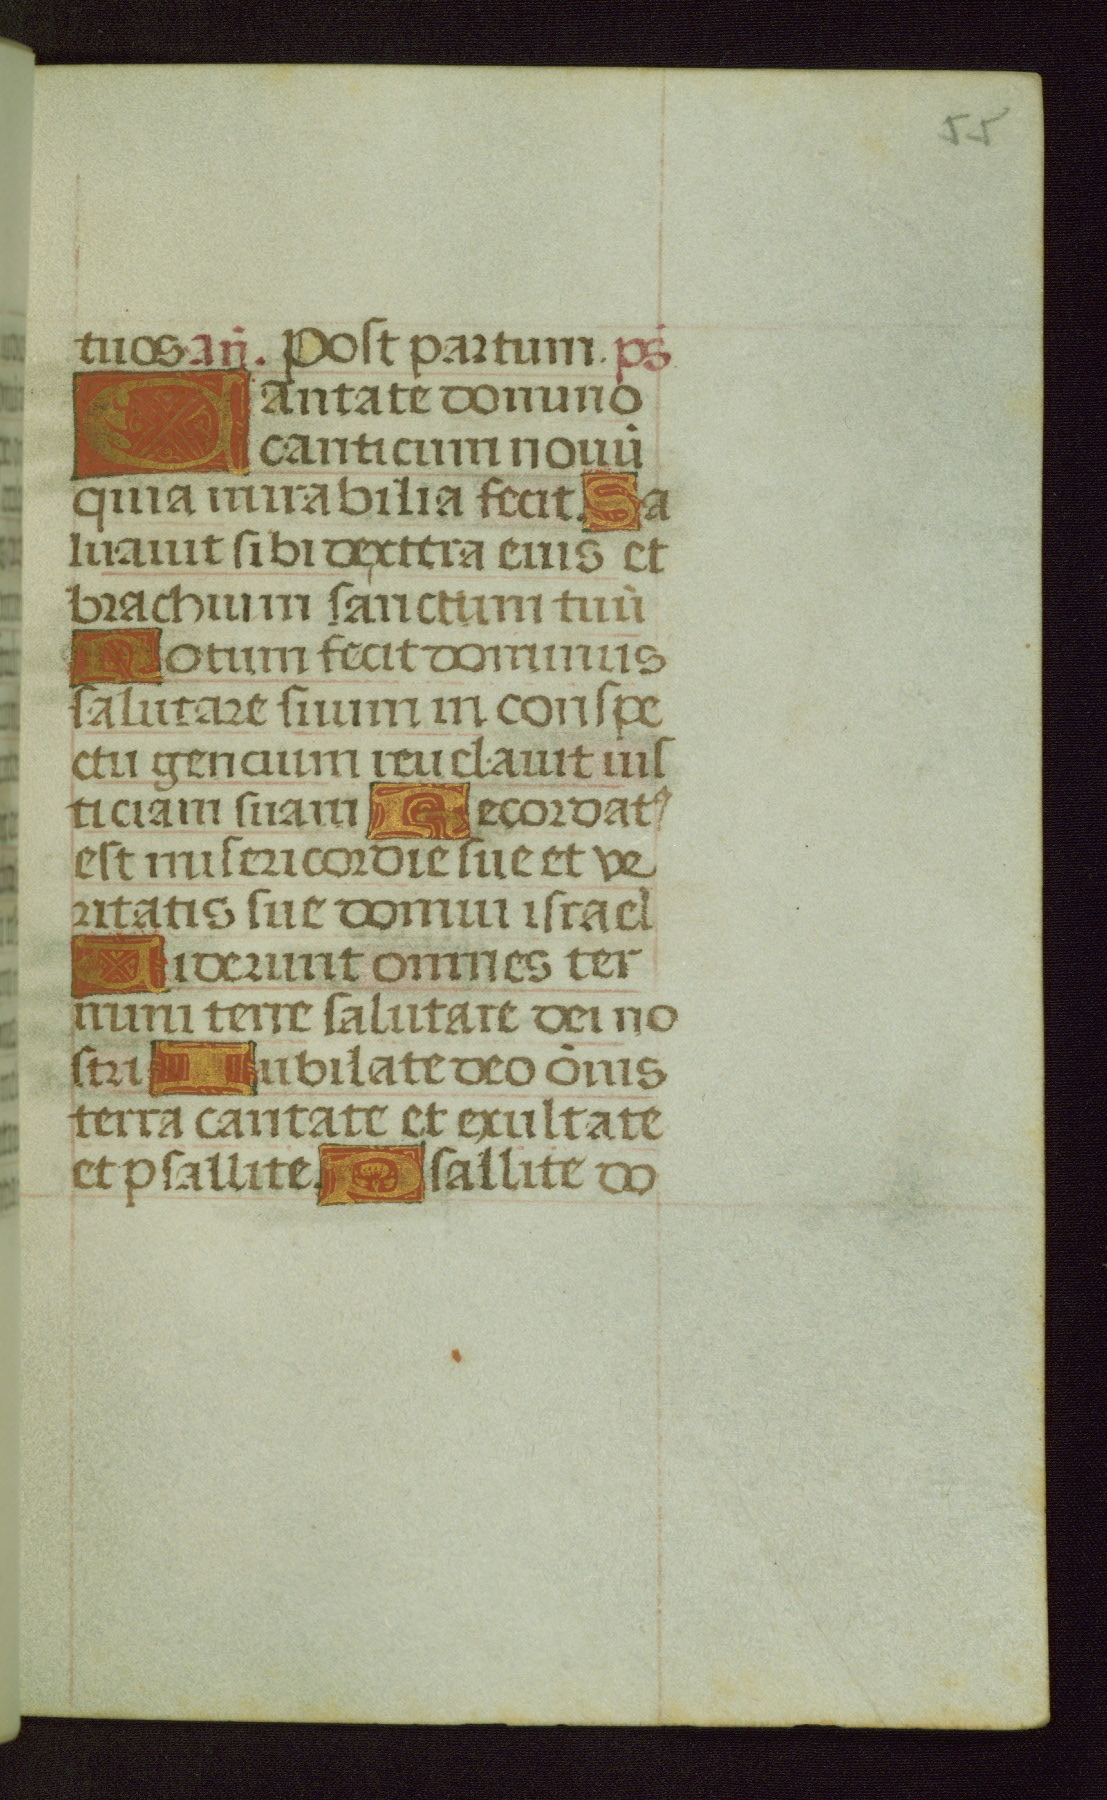 55
tuos añ. Post partum. ps̄
Cantate domino
canticum nouū
quia mirabilia fecit. Sa
luauit sibi dexttra eius et
brachium sanctum tuū
Notum fecit dominus
salutare suum in conspe
ctu gencium reuelauit ius
ticiam suam Recordatꝰ
est misericordie sue et ve
ritatis sue domui israel
Viderunt omnes ter
mini terre salutare dei no
stri Iubilate deo ōnis
terra cantate et exultate
et psallite. Psallite do